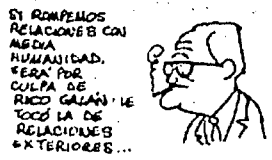 SI ROMPEMOS
RELACIONES CON
MEDIA
HUMANIDAD,
SERÁ POR
CULPA DE
RICO GALÁN: LE
TOCÓ LA DE
RELACIONES
EXTERIORES...